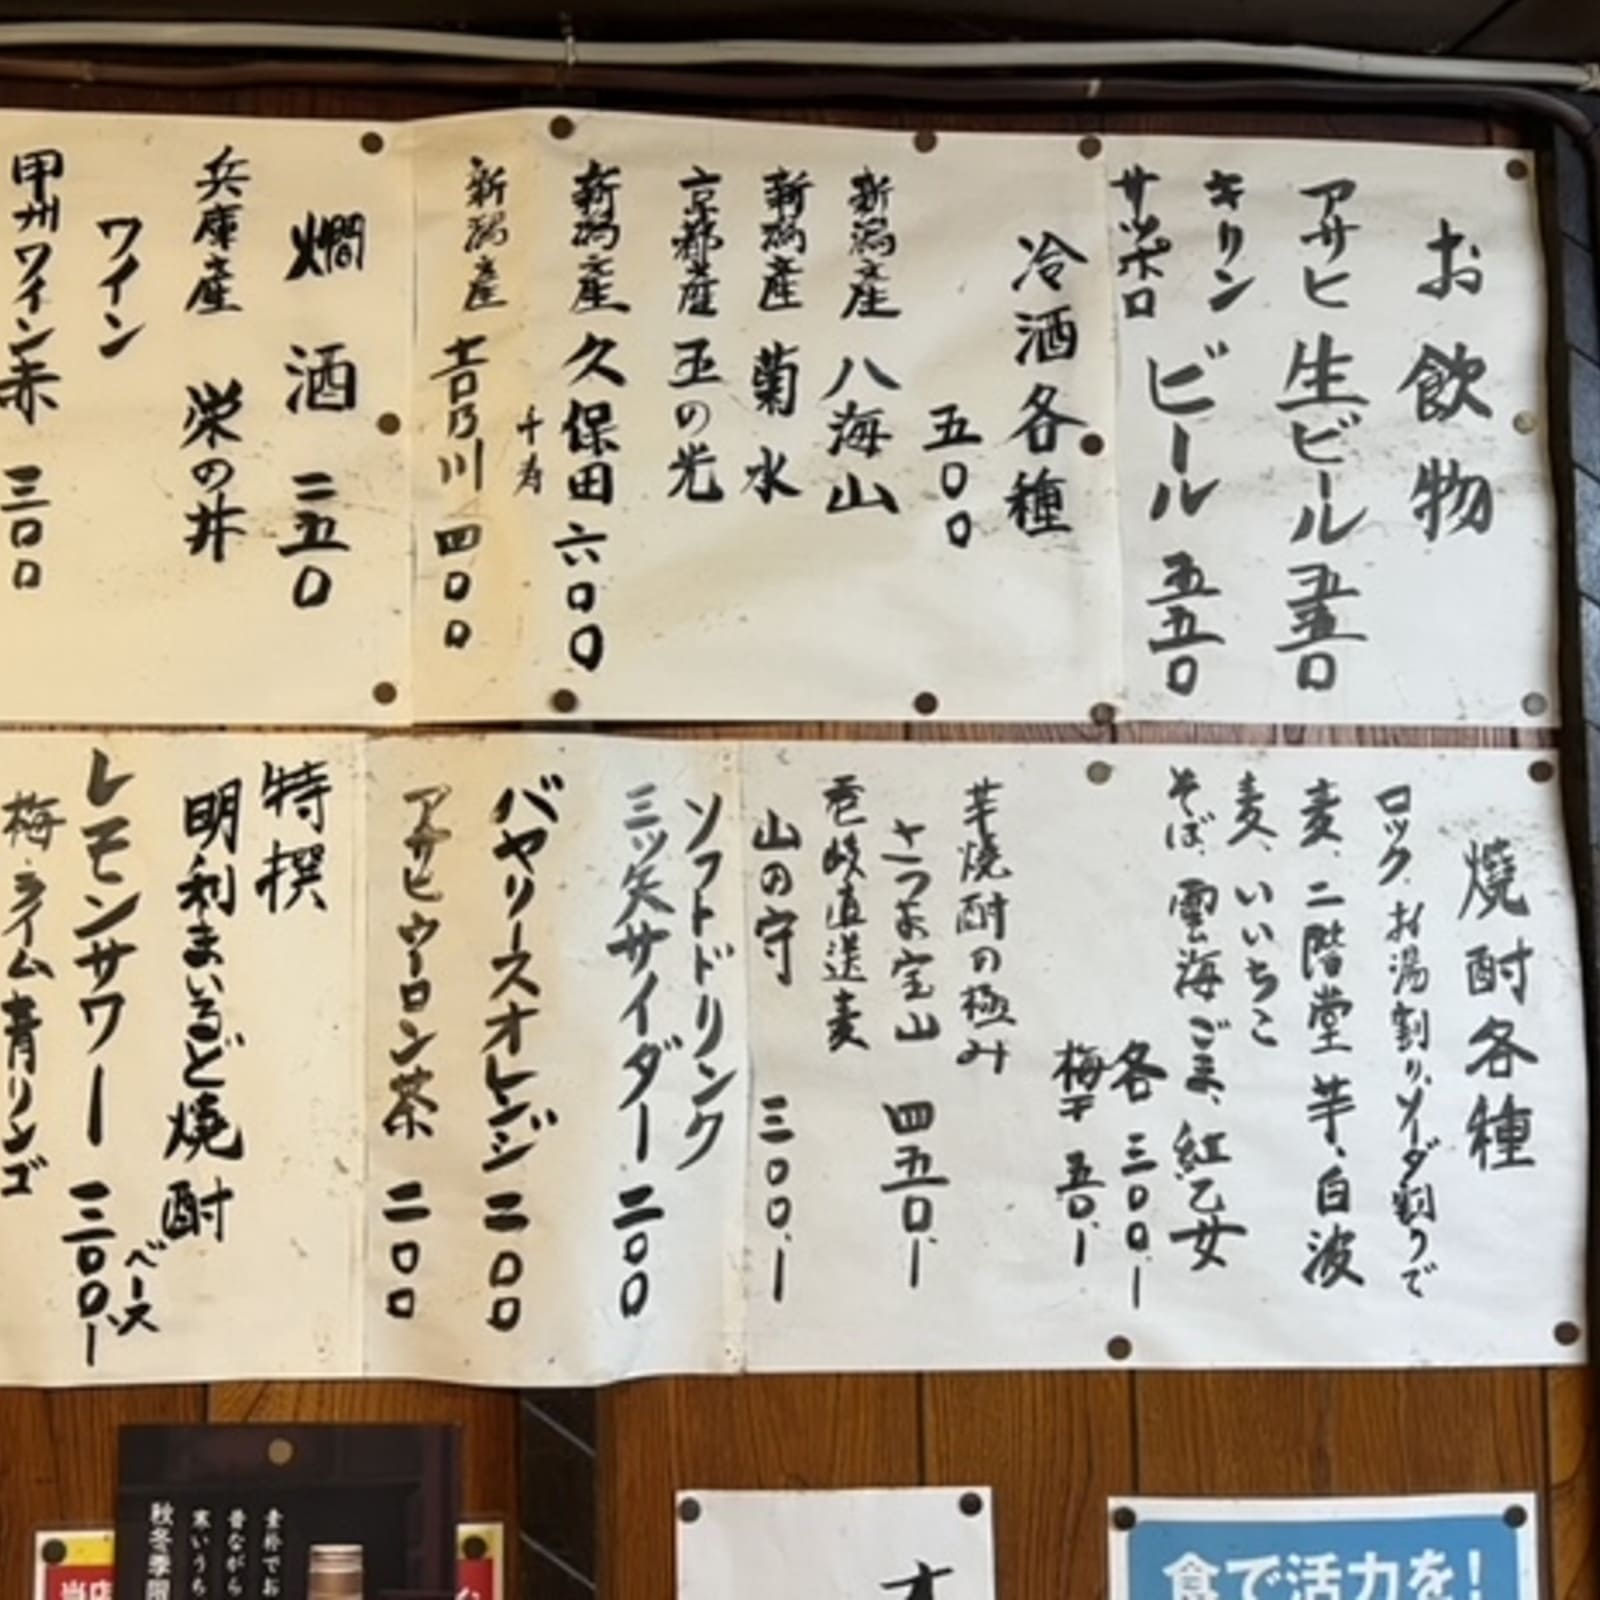 お飲物
アサヒ 生ビール 五五〇
キリン
サッポロ ビール 五五〇
冷酒各種
五〇〇
新潟産 八海山
新潟産 菊水
京都産 玉の光
新潟産 久保田 六〇〇
千寿
新潟産 吉乃川 四〇〇
燗酒 二五〇
兵庫産 栄の井
ワイン
甲州ワイン赤 三〇〇
焼酎各種
ロック、お湯割り、ソーダ割りで
麦、二階堂 芋、白波
麦、いいちこ
そば、雲海 ごま、紅乙女
各 三〇〇、ー
梅干 五〇、ー
芋焼酎の極み
さつま宝山 四五〇、ー
壱岐直送麦
山の守 三〇〇、ー
ソフトドリンク
三ツ矢サイダー 二〇〇
バヤリースオレンジ 二〇〇
アサヒウーロン茶 二〇〇
特撰
明利まいるど焼酎
ベース
レモンサワー 三〇〇、ー
梅 ライム 青リンゴ
素朴でお
昔ながら
寒いうち
秋冬季限
当店
食で活力を!